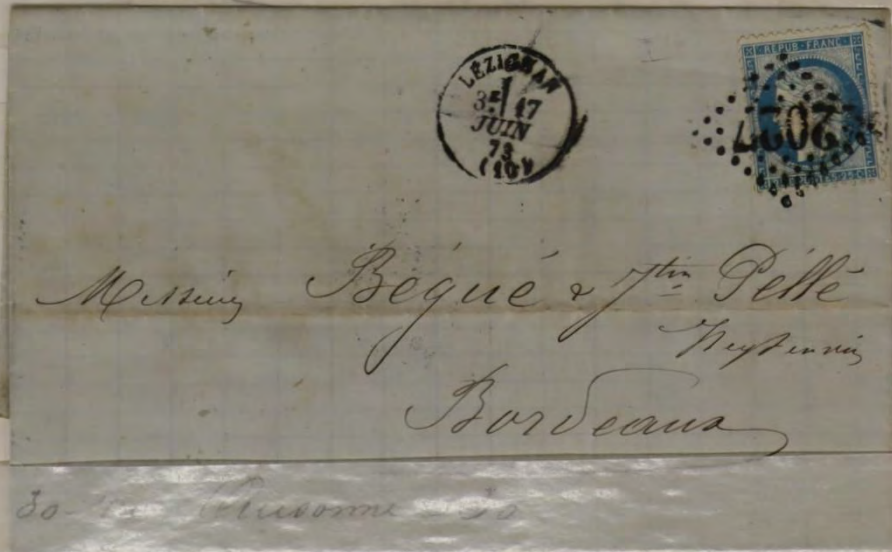 LÉZIGNAN
3E 17
JUIN
73
(10)
REPUB FRANC
2027
25 C
Messieurs Bégué & Jtin Péllé
Bordeaux
30